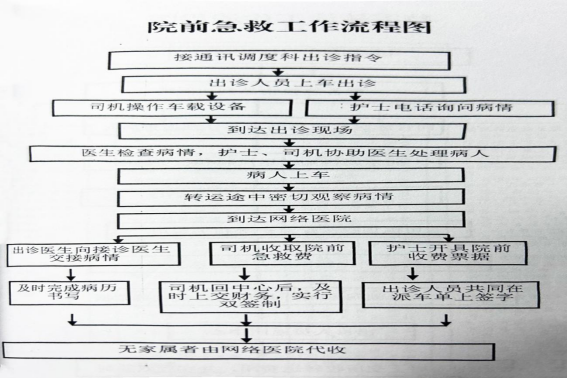 院前急救工作流程图
接通讯调度科出诊指令
出诊人员上车出诊
司机操作车载设备
护士电话询问病情
到达出诊现场
医生检查病情，护士、司机协助医生处理病人
病人上车
转运途中密切观察病情
到达网络医院
出诊医生向接诊医生
交接病情
司机收取院前
急救费
护士开具院前
收费票据
及时完成病历
书写
司机回中心后，及
时上交财务，实行
双签制
出诊人员共同在
派车单上签字
无家属者由网络医院代收